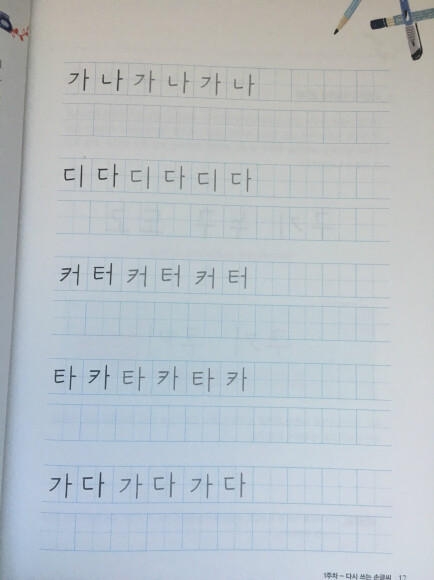 가 나 가 나 가 나
디 다 디 다 디 다
커 터 커 터 커 터
타 카 타 카 타 카
가 다 가 다 가 다
1주차 – 다시 쓰는 손글씨 17